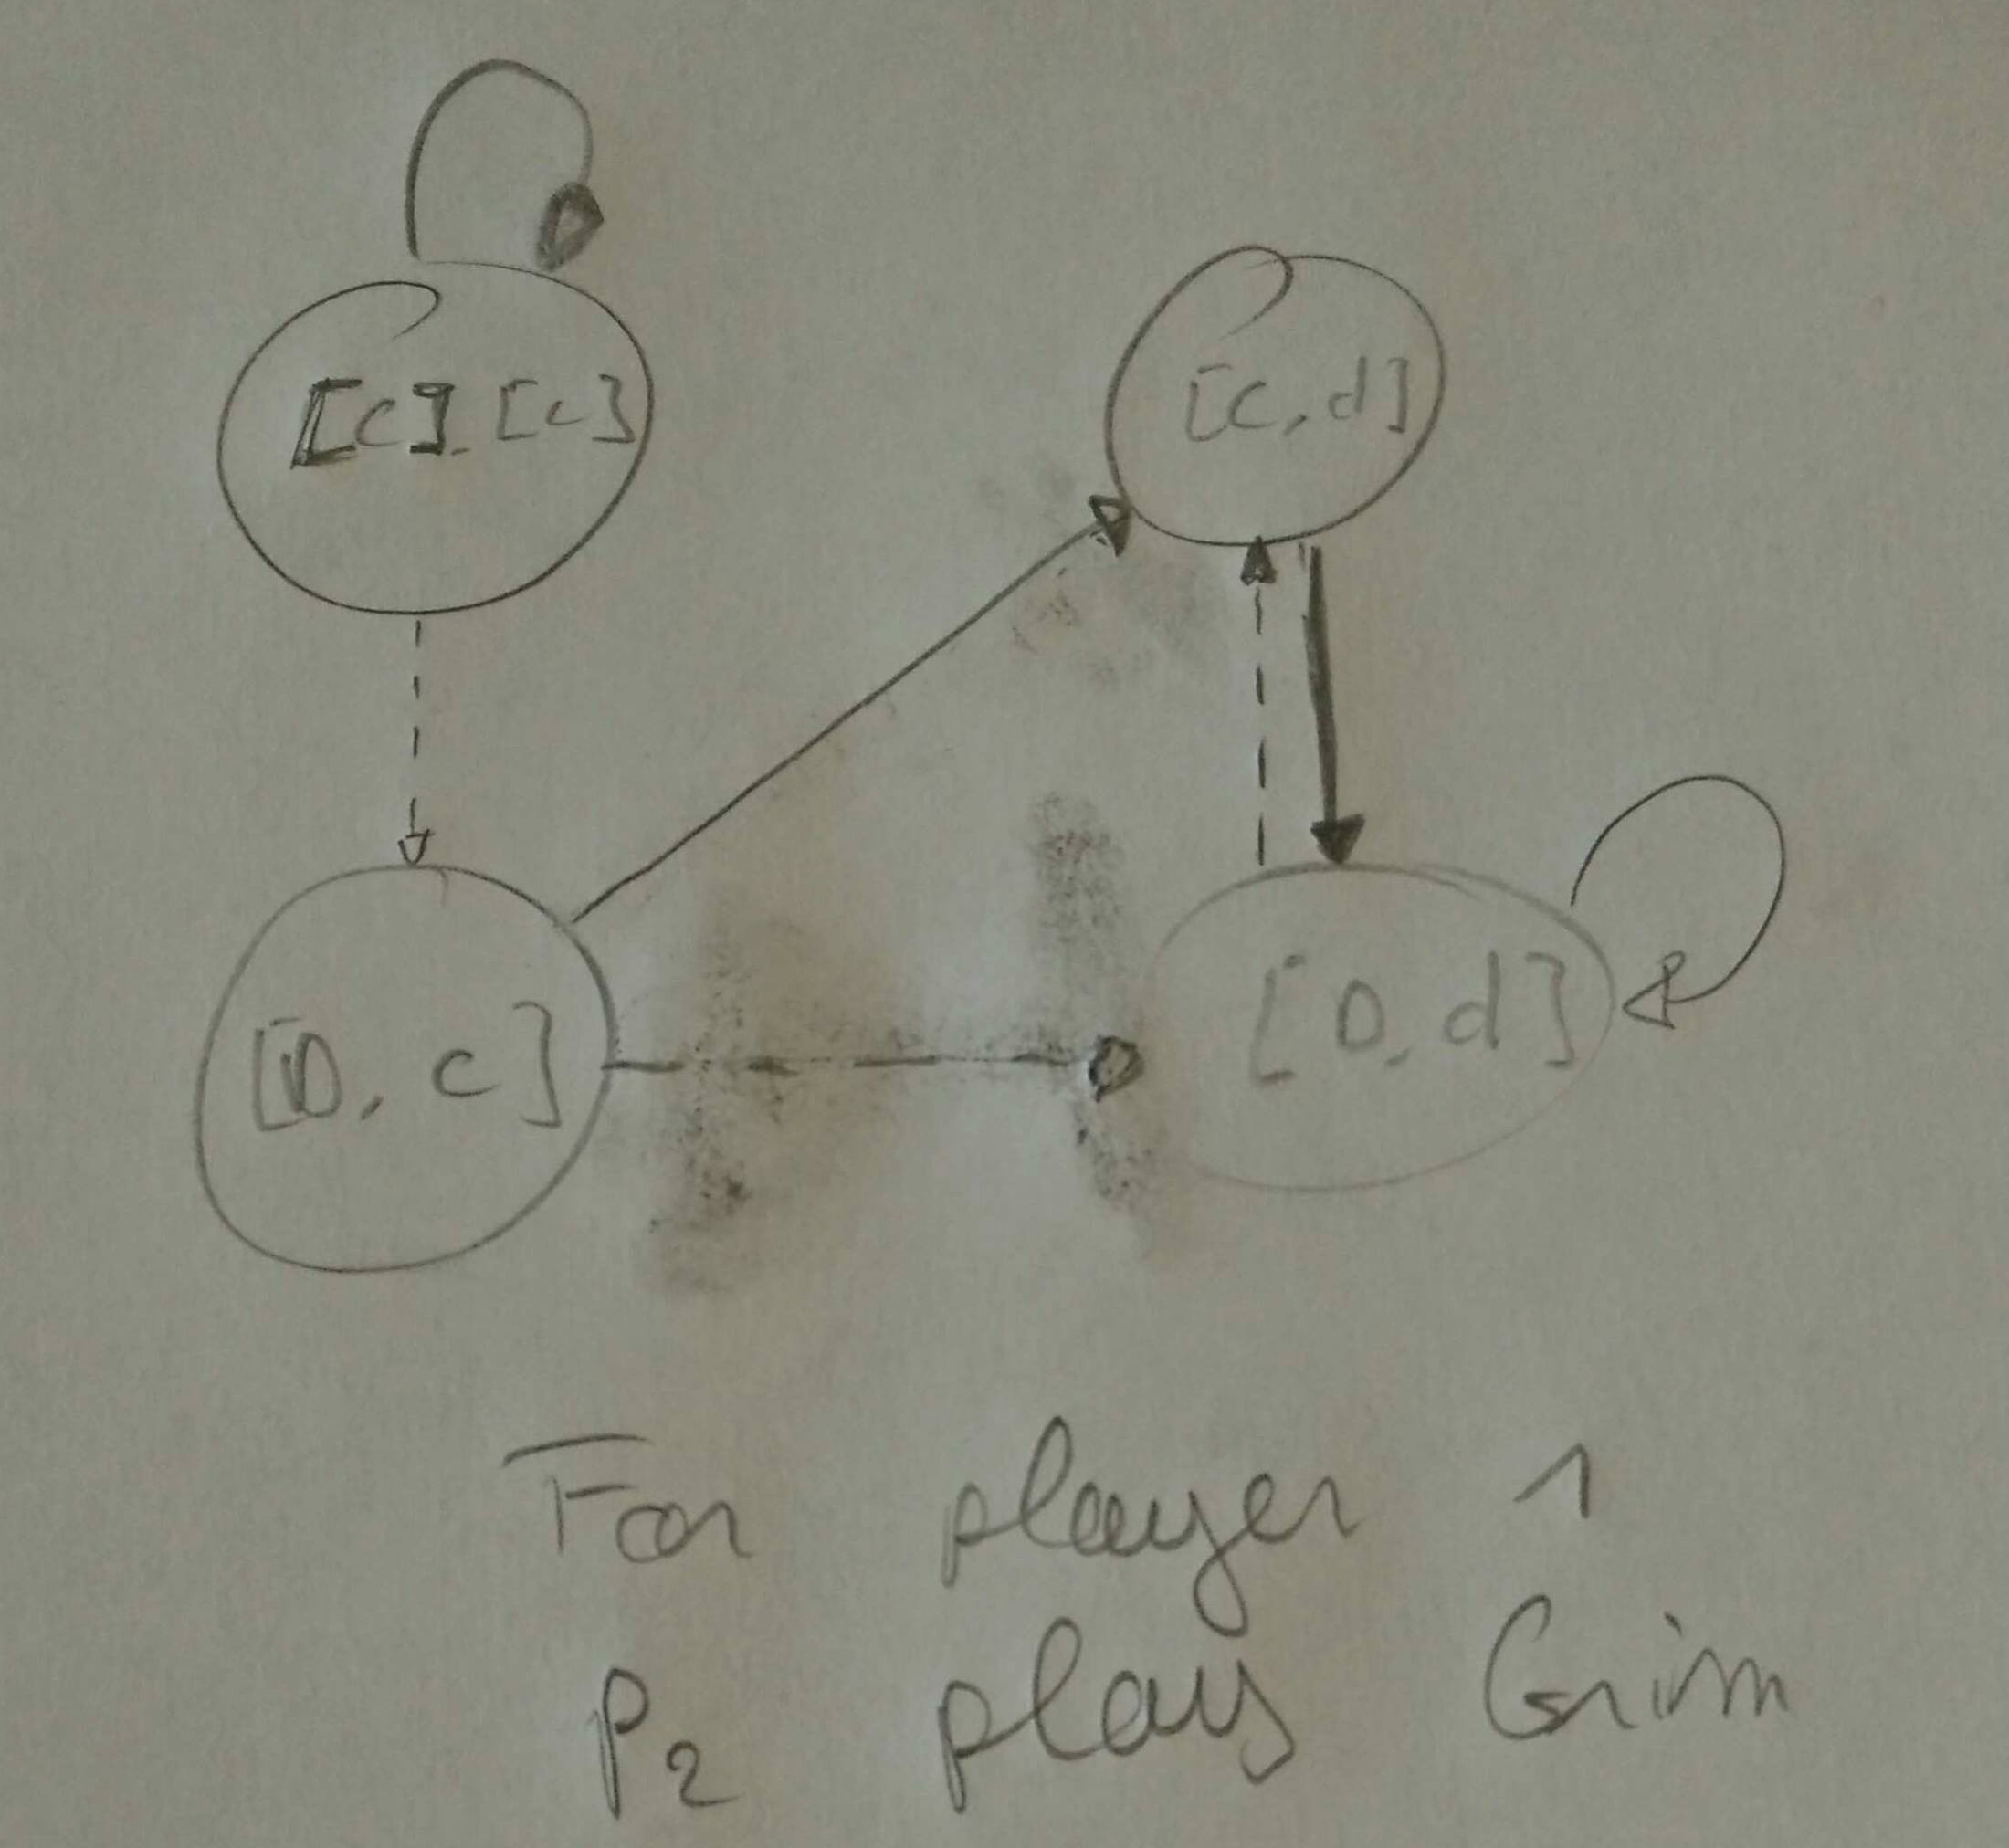 [C].[c]
[C,d]
[D,c]
[D,d]
For player 1
P2 plays Grim